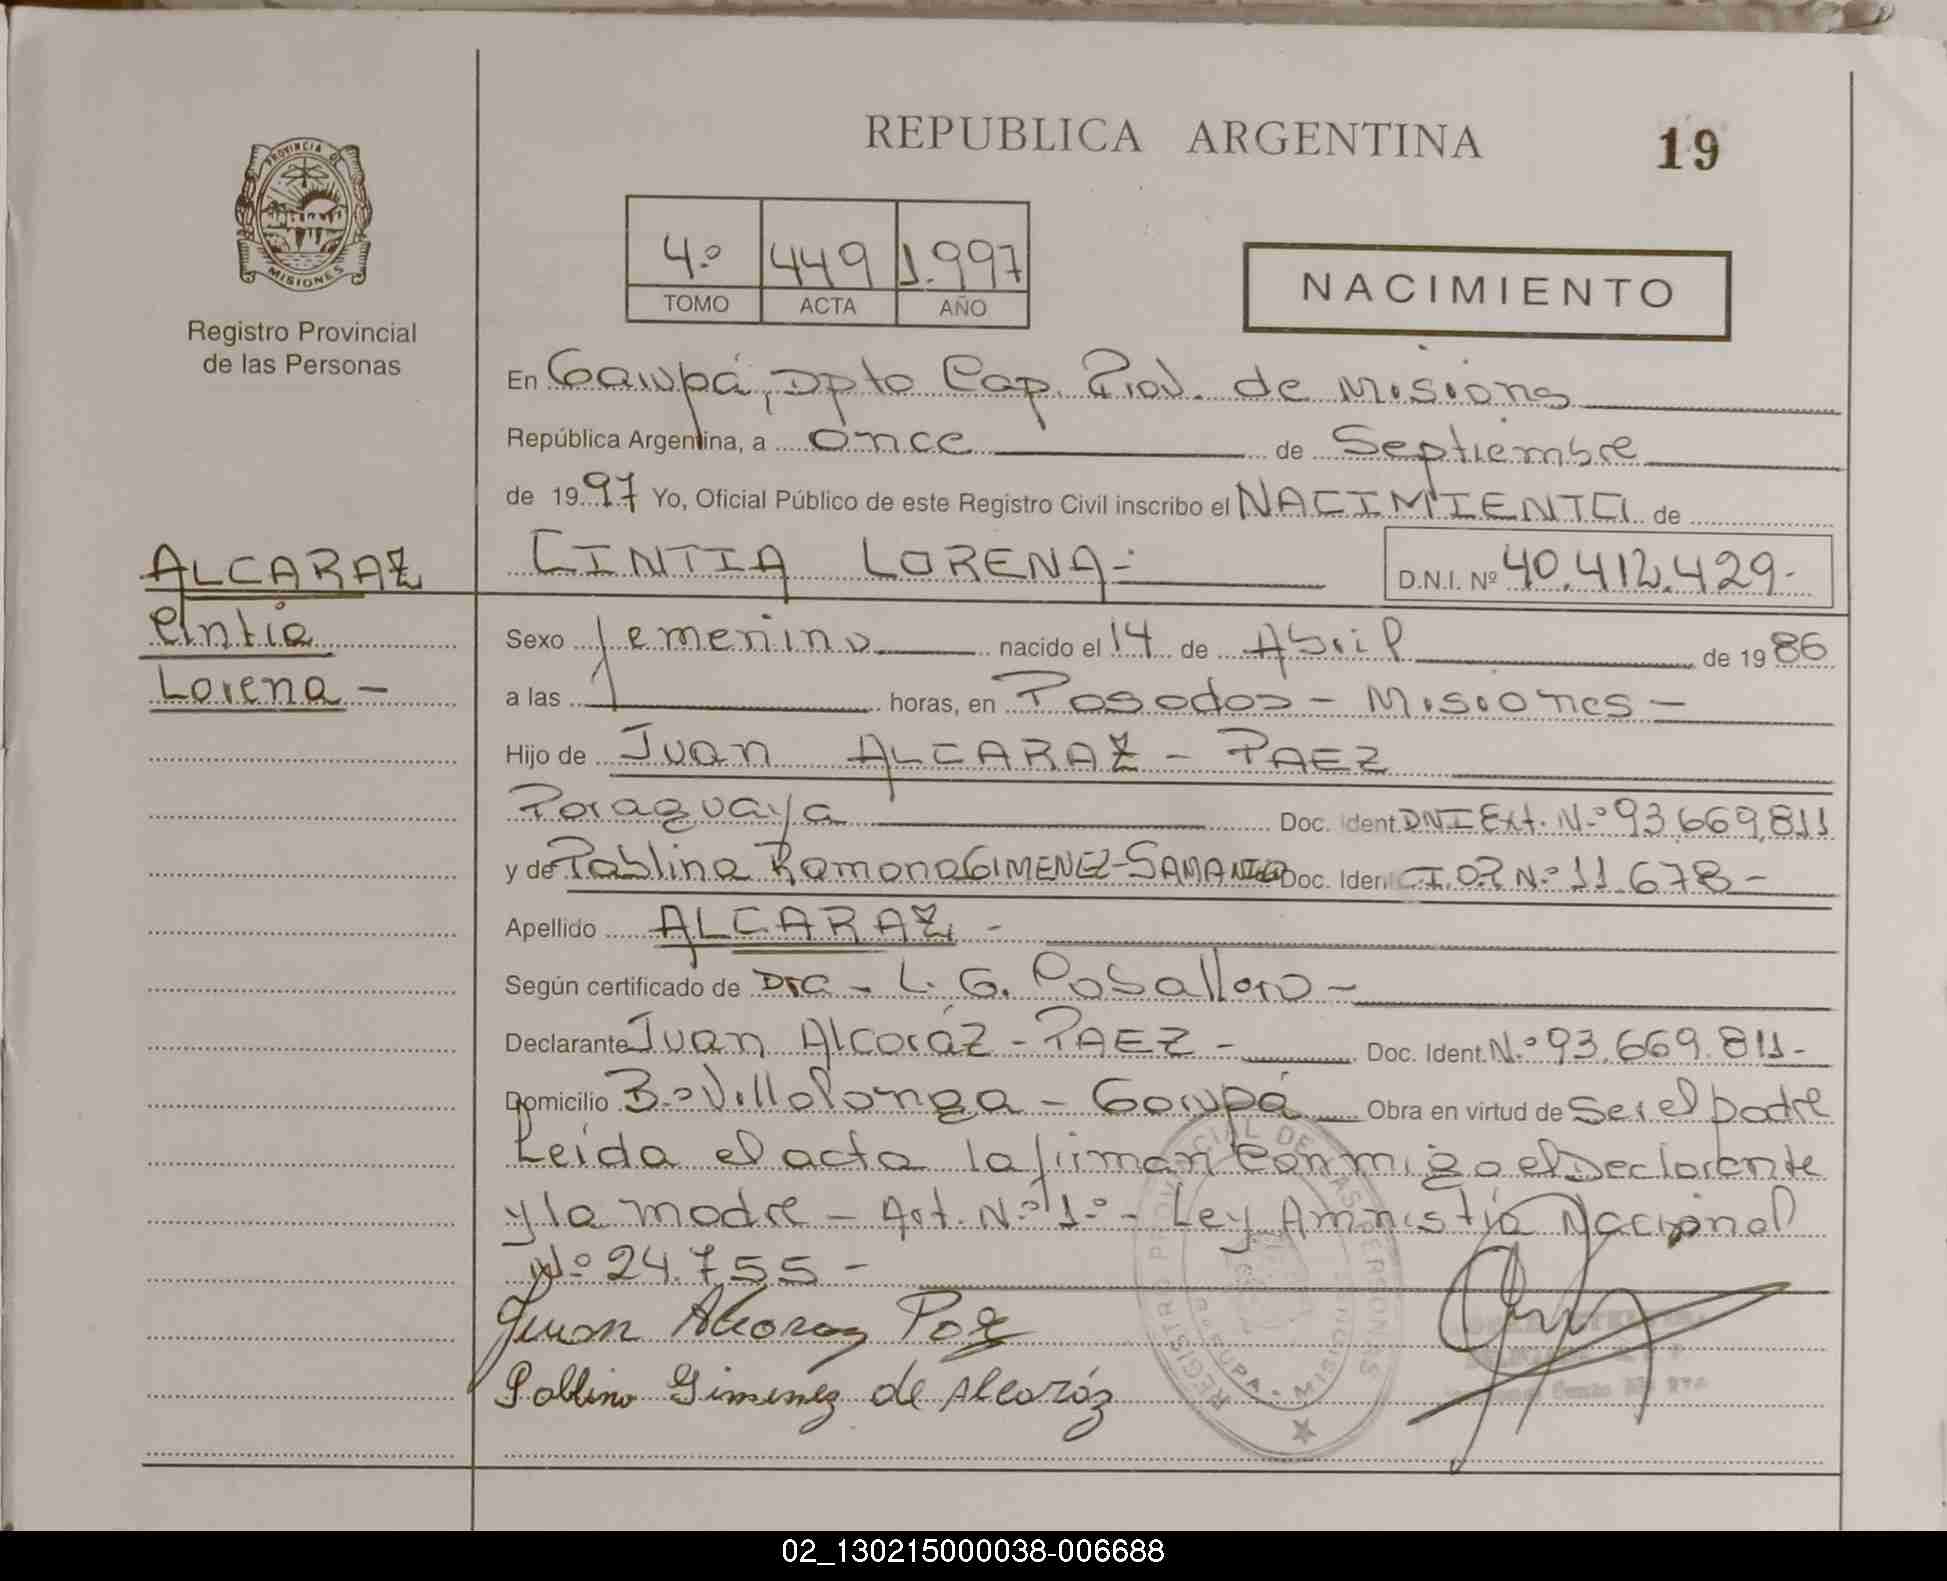 PROVINCIA DE
MISIONES
Registro Provincial
de las Personas
REPUBLICA ARGENTINA
19
4.º 449 1.997
TOMO ACTA AÑO
NACIMIENTO
En Garupá, Dpto Cap. Prov. de Misiones
República Argentina, a once de Septiembre
de 1997 Yo, Oficial Público de este Registro Civil inscribo el NACIMIENTO de
CINTIA LORENA=
D.N.I. Nº 40.412.429-
ALCARAZ
Cintia
Lorena -
Sexo femenino nacido el 14 de Abril de 1986
a las horas, en Posadas - Misiones -
Hijo de Juan ALCARAZ - PAEZ
Paraguaya Doc. Ident. DNI Ext. N.º 93.669.811
y de Pablina Ramona GIMENEZ-SAMANIEGO Doc. Ident. C.I.O.P. N.º 11.678-
Apellido ALCARAZ -
Según certificado de Dra - L. G.
Declarante Juan Alcaráz - PAEZ - Doc. Ident. N.º 93.669.811-
Domicilio B.º Villalonga - Garupá Obra en virtud de Ser el padre
Leída el acta la firman Conmigo el Declarante
y la madre - Art. N.º 1.º - Ley Amnistía Nacional
N.º 24.755 -
Juan Alcaraz Paz
Pablina Gimenez de Alcaráz
REGISTRO PROVINCIAL DE LAS PERSONAS
MISIONES
02_130215000038-006688